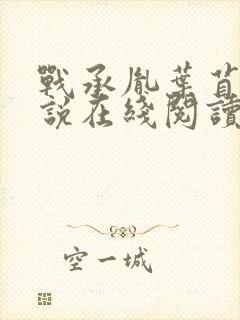 戰承胤葉苜
說在綫閱讀
空一城